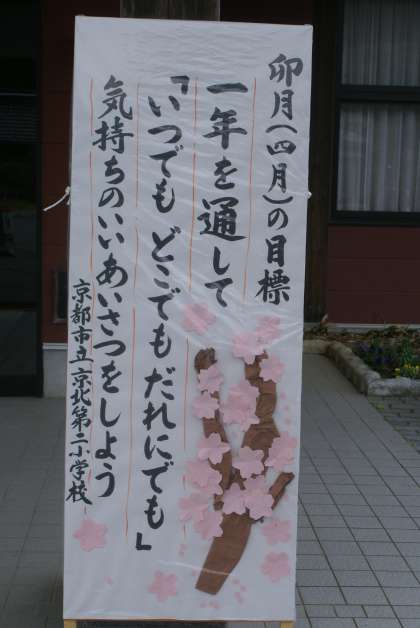 卯月(四月)の目標
一年を通して
「いつでも どこでも だれにでも」
気持ちのいいあいさつをしよう
京都市立京北第二小学校